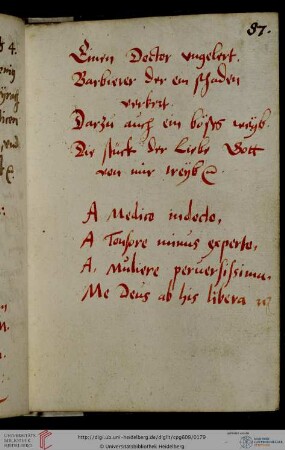 87.
Einen Doctor ungelert.
Barbierer der ein schaden
verkert.
Darzu auch ein böses weyb.
Die stück der Liebe Gott
von mir treyb
A Medico indocto,
A Tonsore minus experto,
A. Muliere perversissima.
Me Deus ab his libera
UNIVERSITÄTS-
BIBLIOTHEK
HEIDELBERG
http://digi.ub.uni-heidelberg.de/diglit/cpg808/0179
© Universitätsbibliothek Heidelberg